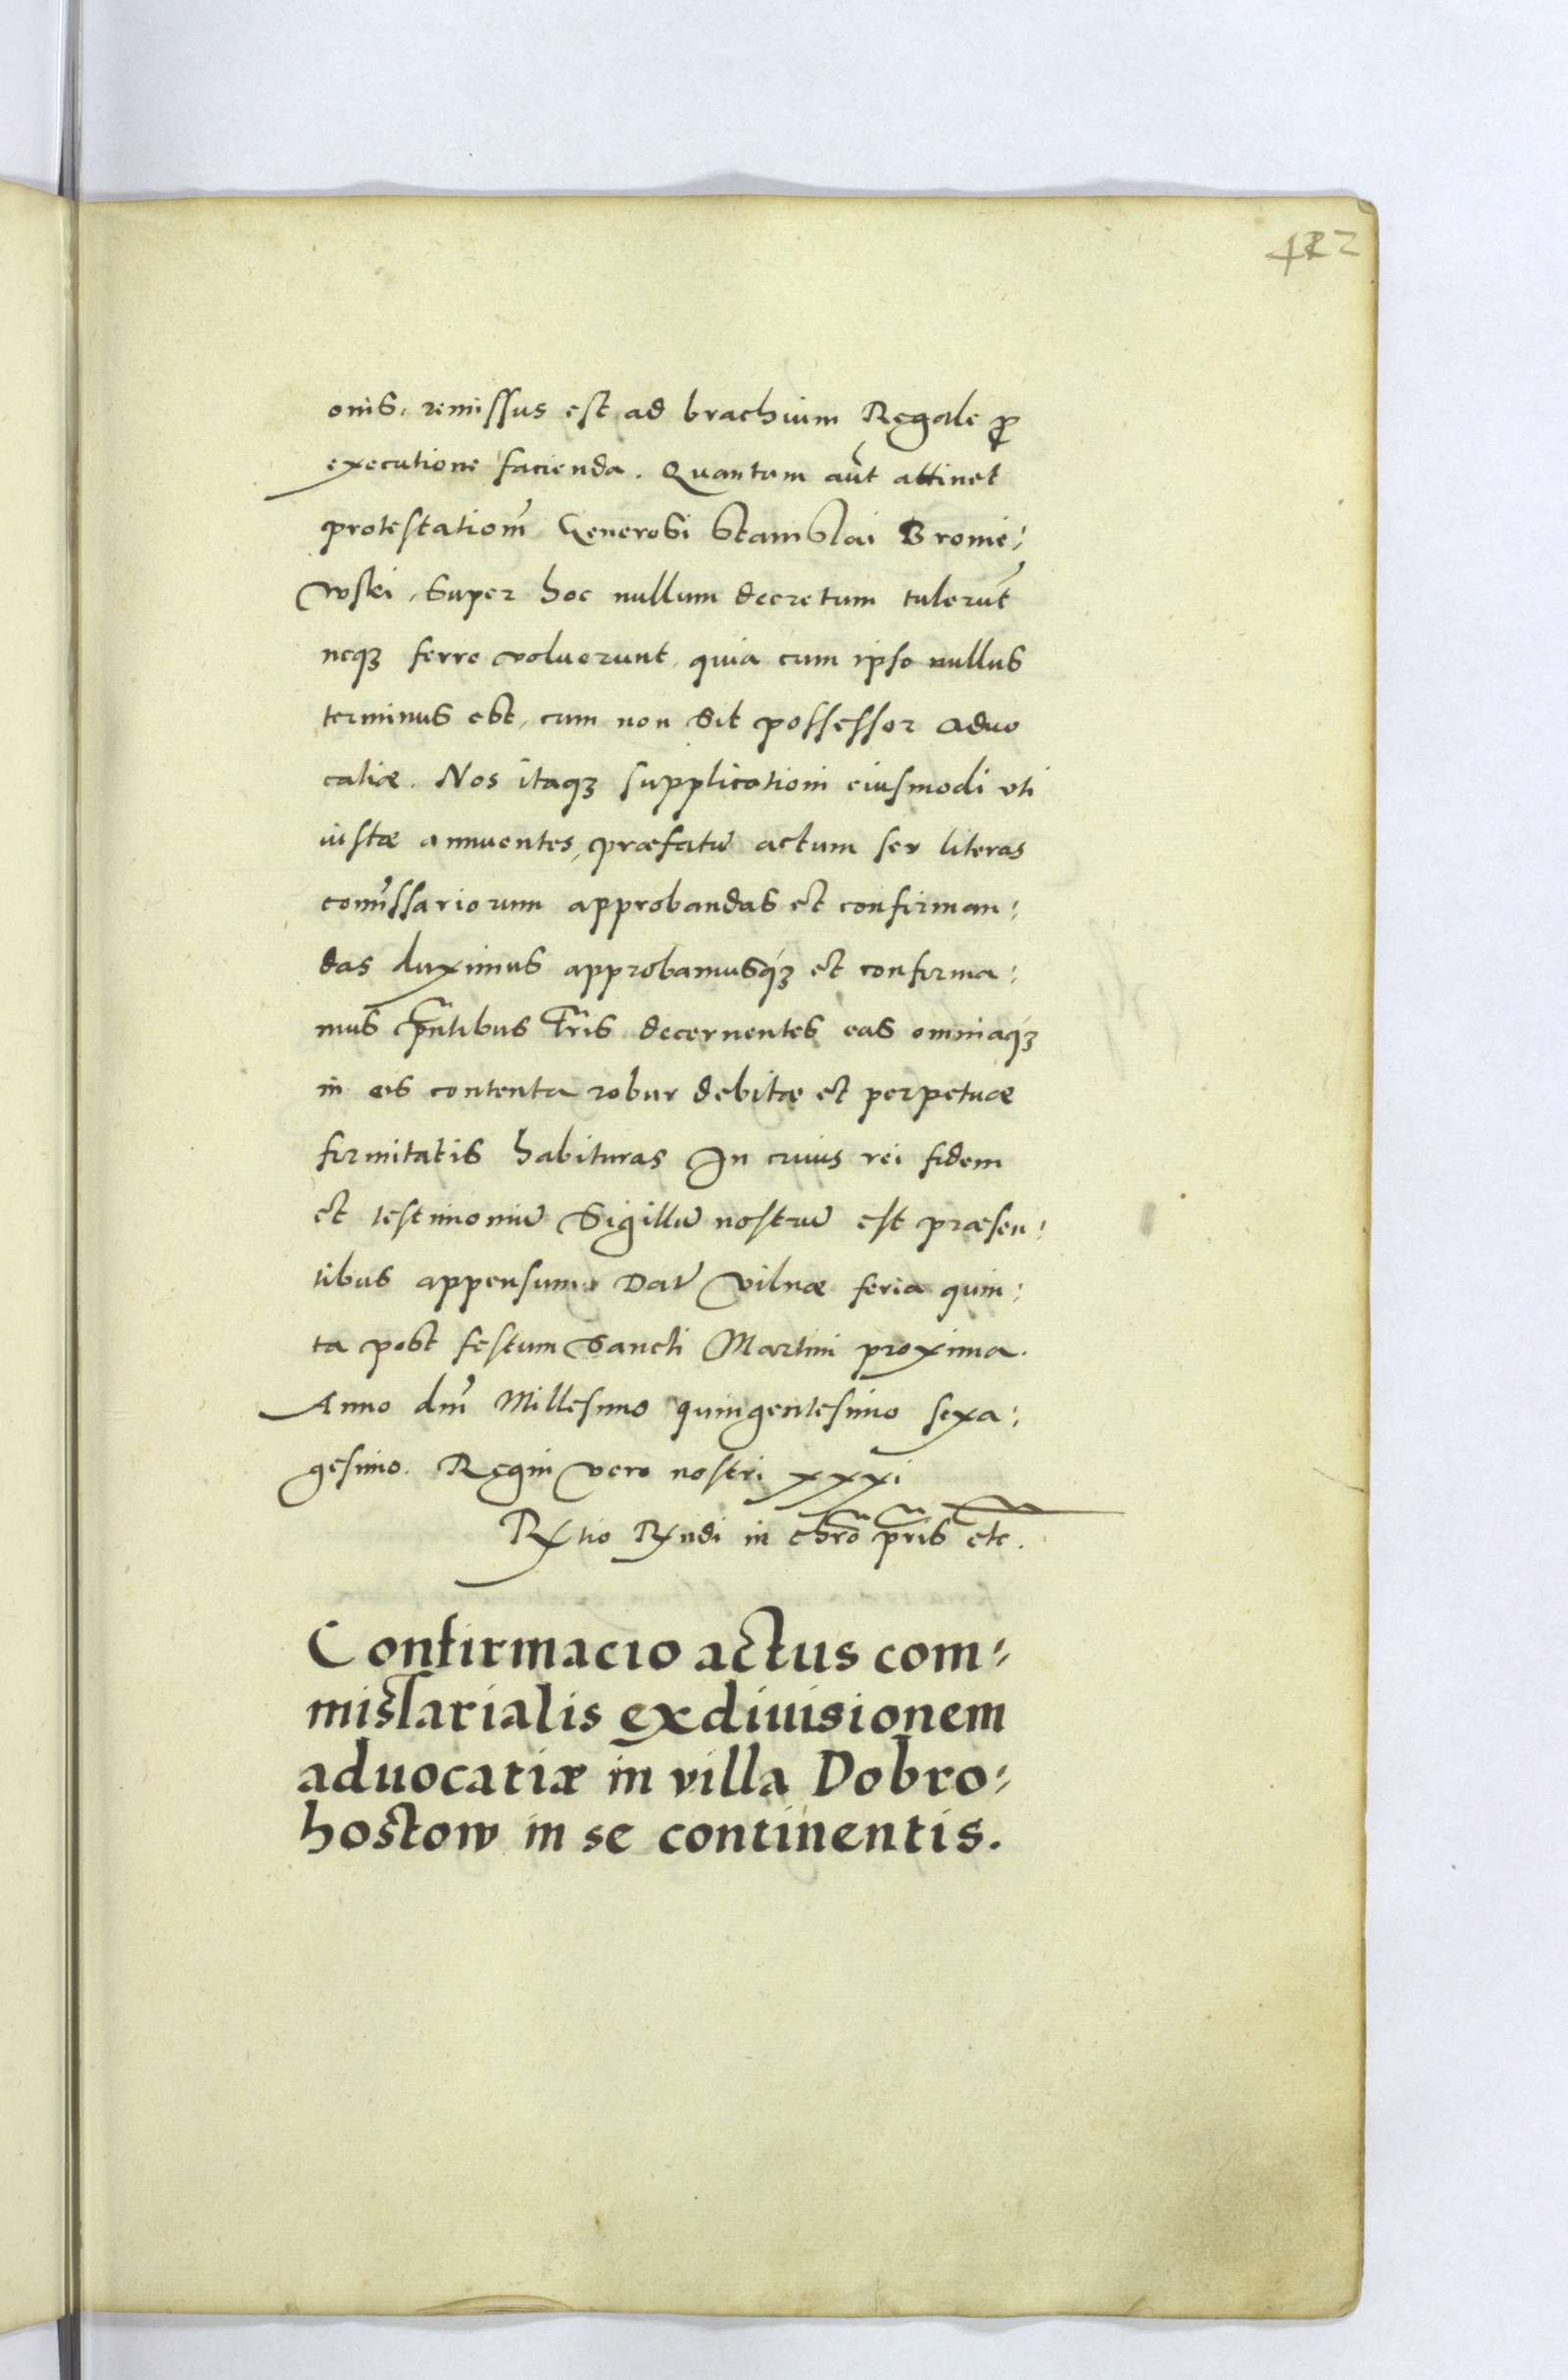 422
onis, remissus est ad brachium Regale ꝓ
executione facienda. Quantum aūt attinet
protestationē Generosi Stanislai Bronie:
wski, super hoc nullum decretum tulerūt
neqꝫ ferre voluerunt, quia cum ipso nullus
terminus est, cum non sit possessor aduo
catiæ. Nos itaqꝫ supplicationi eiusmodi vti
iustæ annuentes, præfatū actum seu literas
com̄issariorum approbandas et confirman:
das duximus approbamusqꝫ et confirma:
mus p̄ntibus l̄ris decernentes eas omniaqꝫ
in eis contenta robur debitæ et perpetuæ
firmitatis habituras In cuius rei fidem
et testimoniū Sigillū nostrū est præsen:
tibus appensum. Dat̄ Vilnæ feria quin:
ta post festum Sancti Martini proxima.
Anno dn̄i Millesimo quingentesimo sexa:
gesimo. Regni vero nostri xxxi
Rx̄tio Rx̄ndi in chr̄o pr̄is etc.
Confirmacio actus com:
missarialis ex diuisionem
aduocatiæ in villa Dobro:
hostow in se continentis.